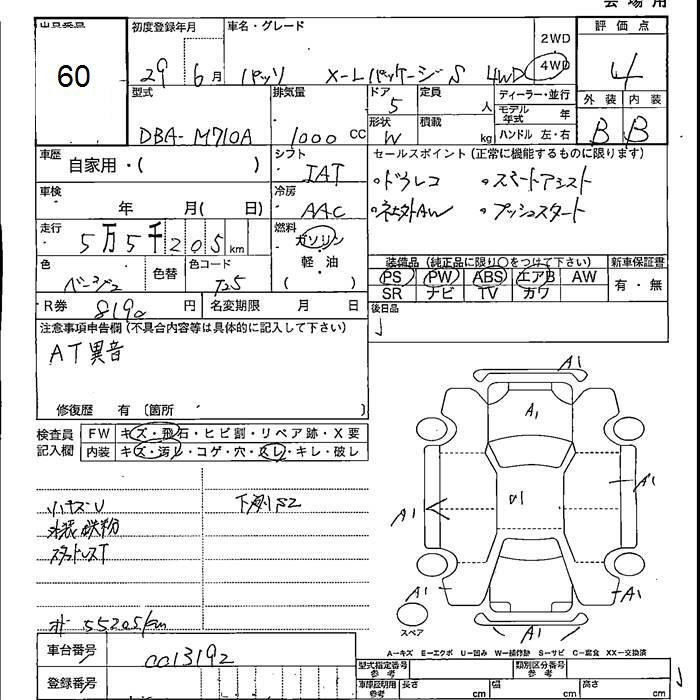 会場用
60
初度登録年月
29年 6月
車名・グレード
パッソ X-LパッケージS 4WD
2WD
4WD
評価点
4
外装 内装
B B
型式
DBA-M710A
排気量
1000 CC
ドア
5
定員
人
形状
W
積載
kg
ディーラー・並行
モデル年式 年
ハンドル 左・右
車歴
自家用・( )
シフト
IAT
セールスポイント(正常に機能するものに限ります)
・ドラレコ ・スマートアシスト
・社外AW ・プッシュスタート
車検
年 月( 日)
冷房
AAC
走行
5万5千205km
燃料
ガソリン
軽・油
( )
色
ベージュ
色替
色コード
T25
装備品(純正品に限り○をつけて下さい)
PS PW ABS エアB AW
SR ナビ TV カワ
新車保証書
有・無
R券 8190円
名変期限 月 日
後日品
注意事項申告欄(不具合内容等は具体的に記入して下さい)
AT異音
修復歴 有 〔箇所 〕
検査員記入欄
FW キズ・飛石・ヒビ割・リペア跡・X要
内装 キズ・汚レ・コゲ・穴・スレ・キレ・破レ
小キズ・U
塗装鉄粉
スタッドレスT
下廻りS2
オ 55205km
A1
A1
A1
A1
U1
A1
A1
A1
スペア
A1
A-キズ E-エクボ U-凹み W-補修跡 S-サビ C-腐食 XX-交換済
車台番号
0013192
登録番号
型式指定番号
参考
類別区分番号
参考
車庫証明用
参考
長さ cm
幅 cm
高さ cm